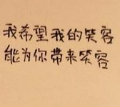 我希望我的笑容
能为你带来笑容